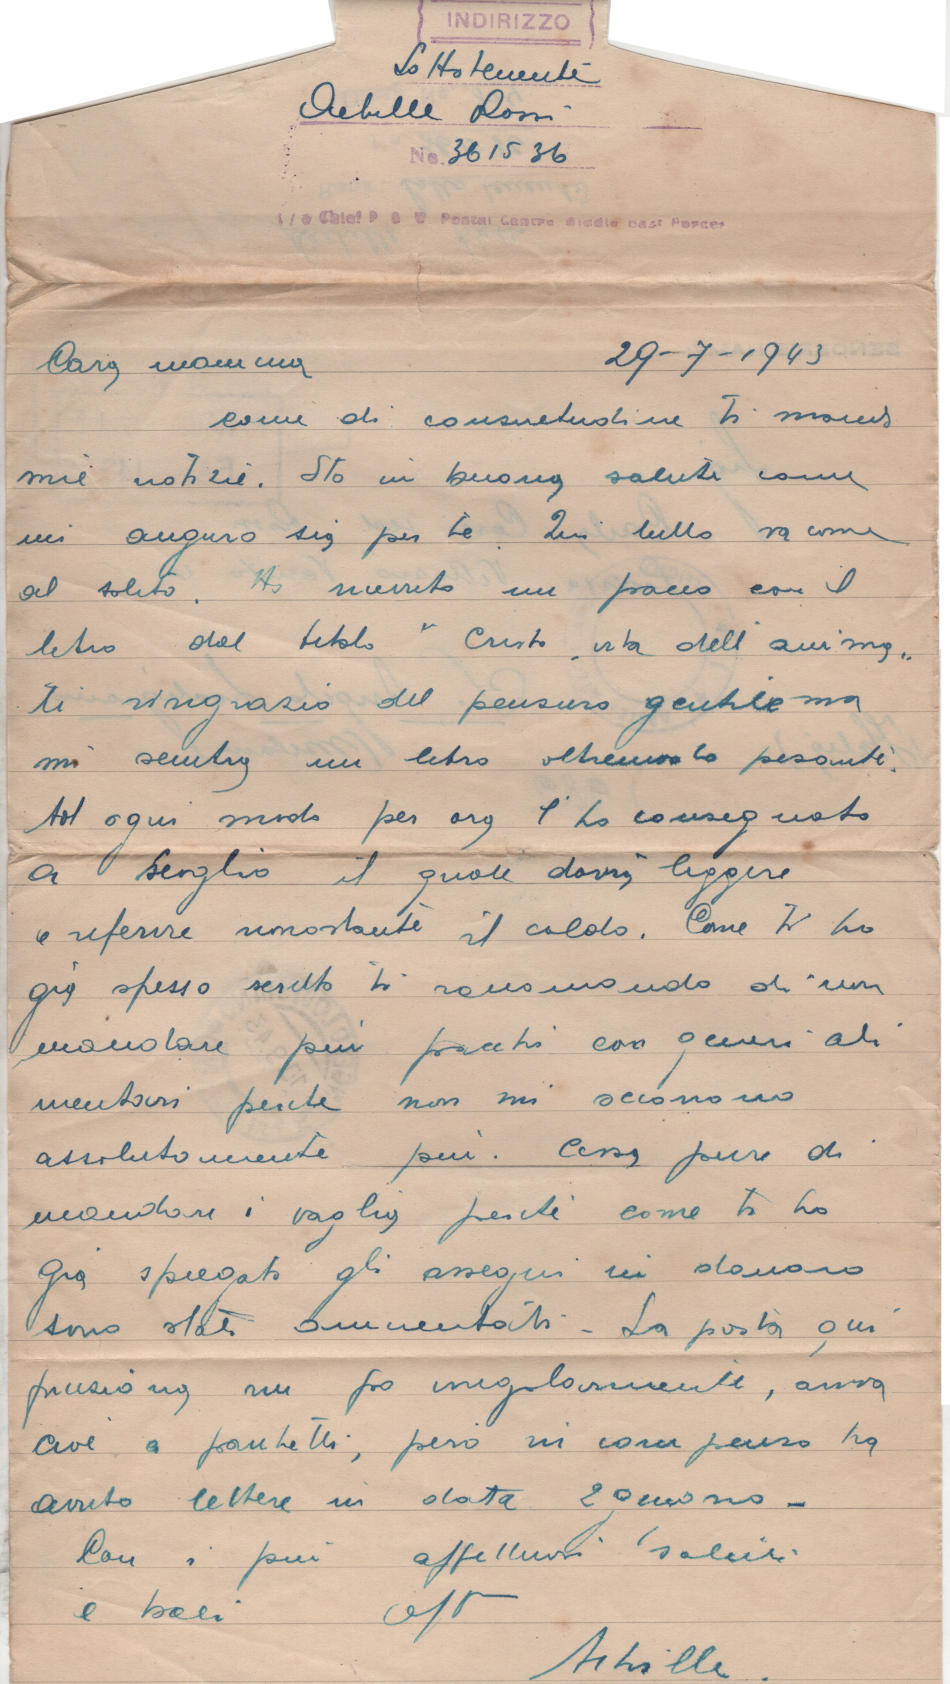 INDIRIZZO
Sottotenente
Achille Rossi
No. 361536
c/o Chief P O W Postal Centre Middle East Forces
Cara mamma 29-7-1943
come di consuetudine ti mando
mie notizie. Sto in buona salute come
mi auguro sia per te. Qui tutto va come
al solito. Ho ricevuto un pacco con il
libro dal titolo " Cristo vita dell'anima "
ti ringrazio del pensiero gentile ma
mi sembra un libro oltremodo pesante.
Ad ogni modo per ora l'ho consegnato
a il quale dovrà leggere
e riferire nonostante il caldo. Come ti ho
già spesso scritto ti raccomando di non
mandare più pacchi con generi ali
mentari perche non mi occorrono
assolutamente più. Cessa pure di
mandare i vaglia perché come ti ho
già spiegato gli assegni in danaro
sono stati aumentati - La posta qui
funziona un po irregolarmente, arriva
cioè a pacchetti, però in compenso ho
avuto lettere in data 2 giugno -
Con i più affettuosi saluti
e baci aff
Achille.